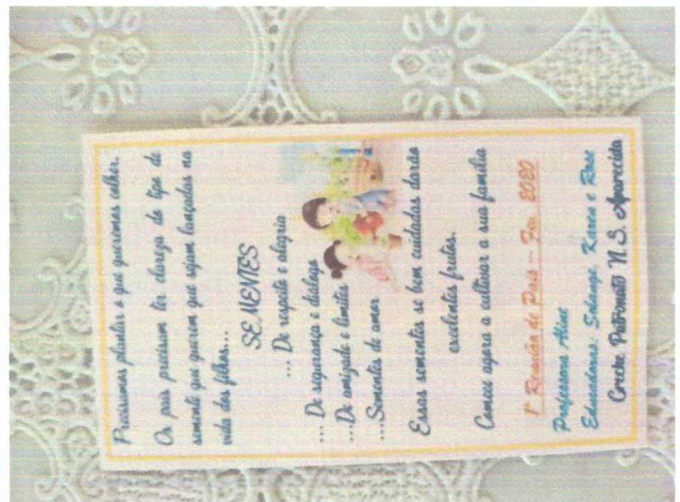 Precisamos plantar o que queremos colher.
Os pais precisam ter clareza do tipo de
semente que querem que sejam lançadas na
vida dos filhos...
SEMENTES
... De respeito e alegria
... De segurança e diálogo
...De amizade e limites
...Sementes de amor.
Essas sementes se bem cuidadas darão
excelentes frutos.
Comece agora a cultivar a sua família
1ª Reunião de Pais - Fev 2020
Professora Aline
Educadoras: Solange, Karen e Rose
Creche Patronato N.S. Aparecida